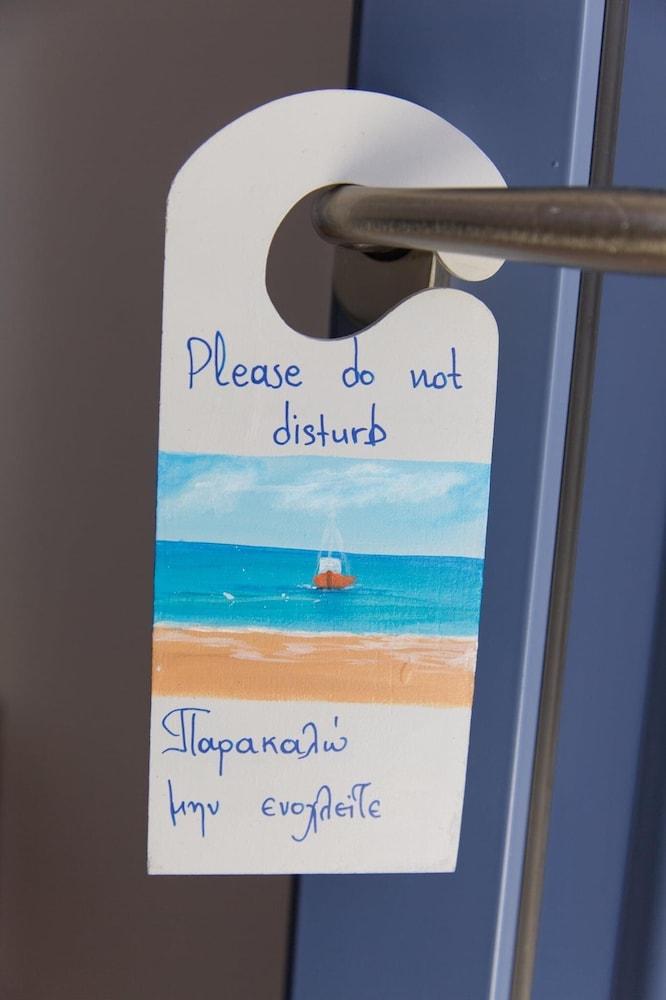 Please do not
disturb
Παρακαλώ
μην ενοχλείτε